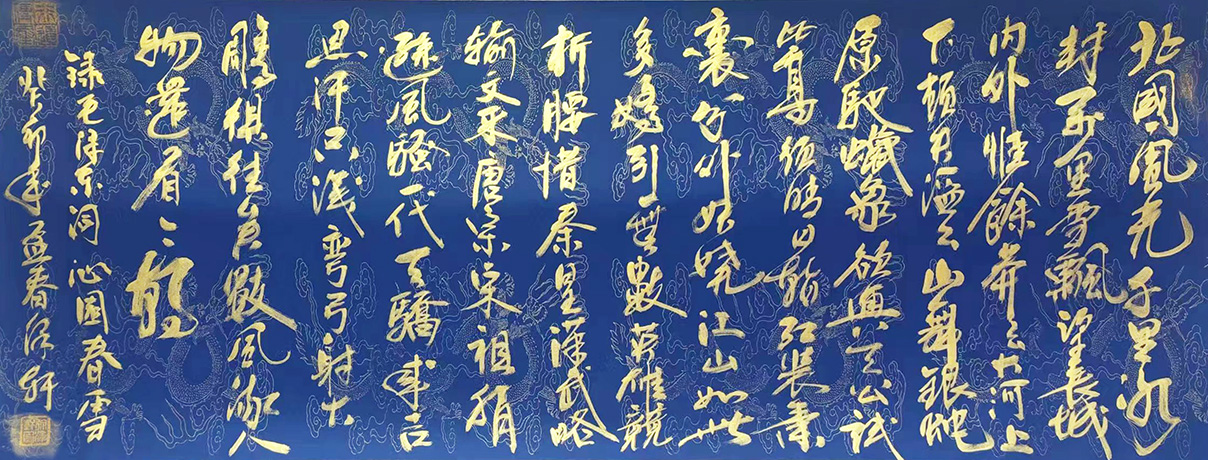 北國風光千里冰
封万里雪飄望長城
内外惟餘莽〻大河上
下頓失滔〻山舞銀蛇
原馳蠟象欲與天公試
比高須晴日看紅裝素
裹分外妖嬈江山如此
多嬌引無數英雄競
折腰惜秦皇漢武略
輸文采唐宗宋祖稍
遜風騷一代天驕成吉
思汗只識彎弓射大
鵰俱往矣數風流人
物還看今朝
録毛澤東詞 沁園春雪
癸卯年孟春